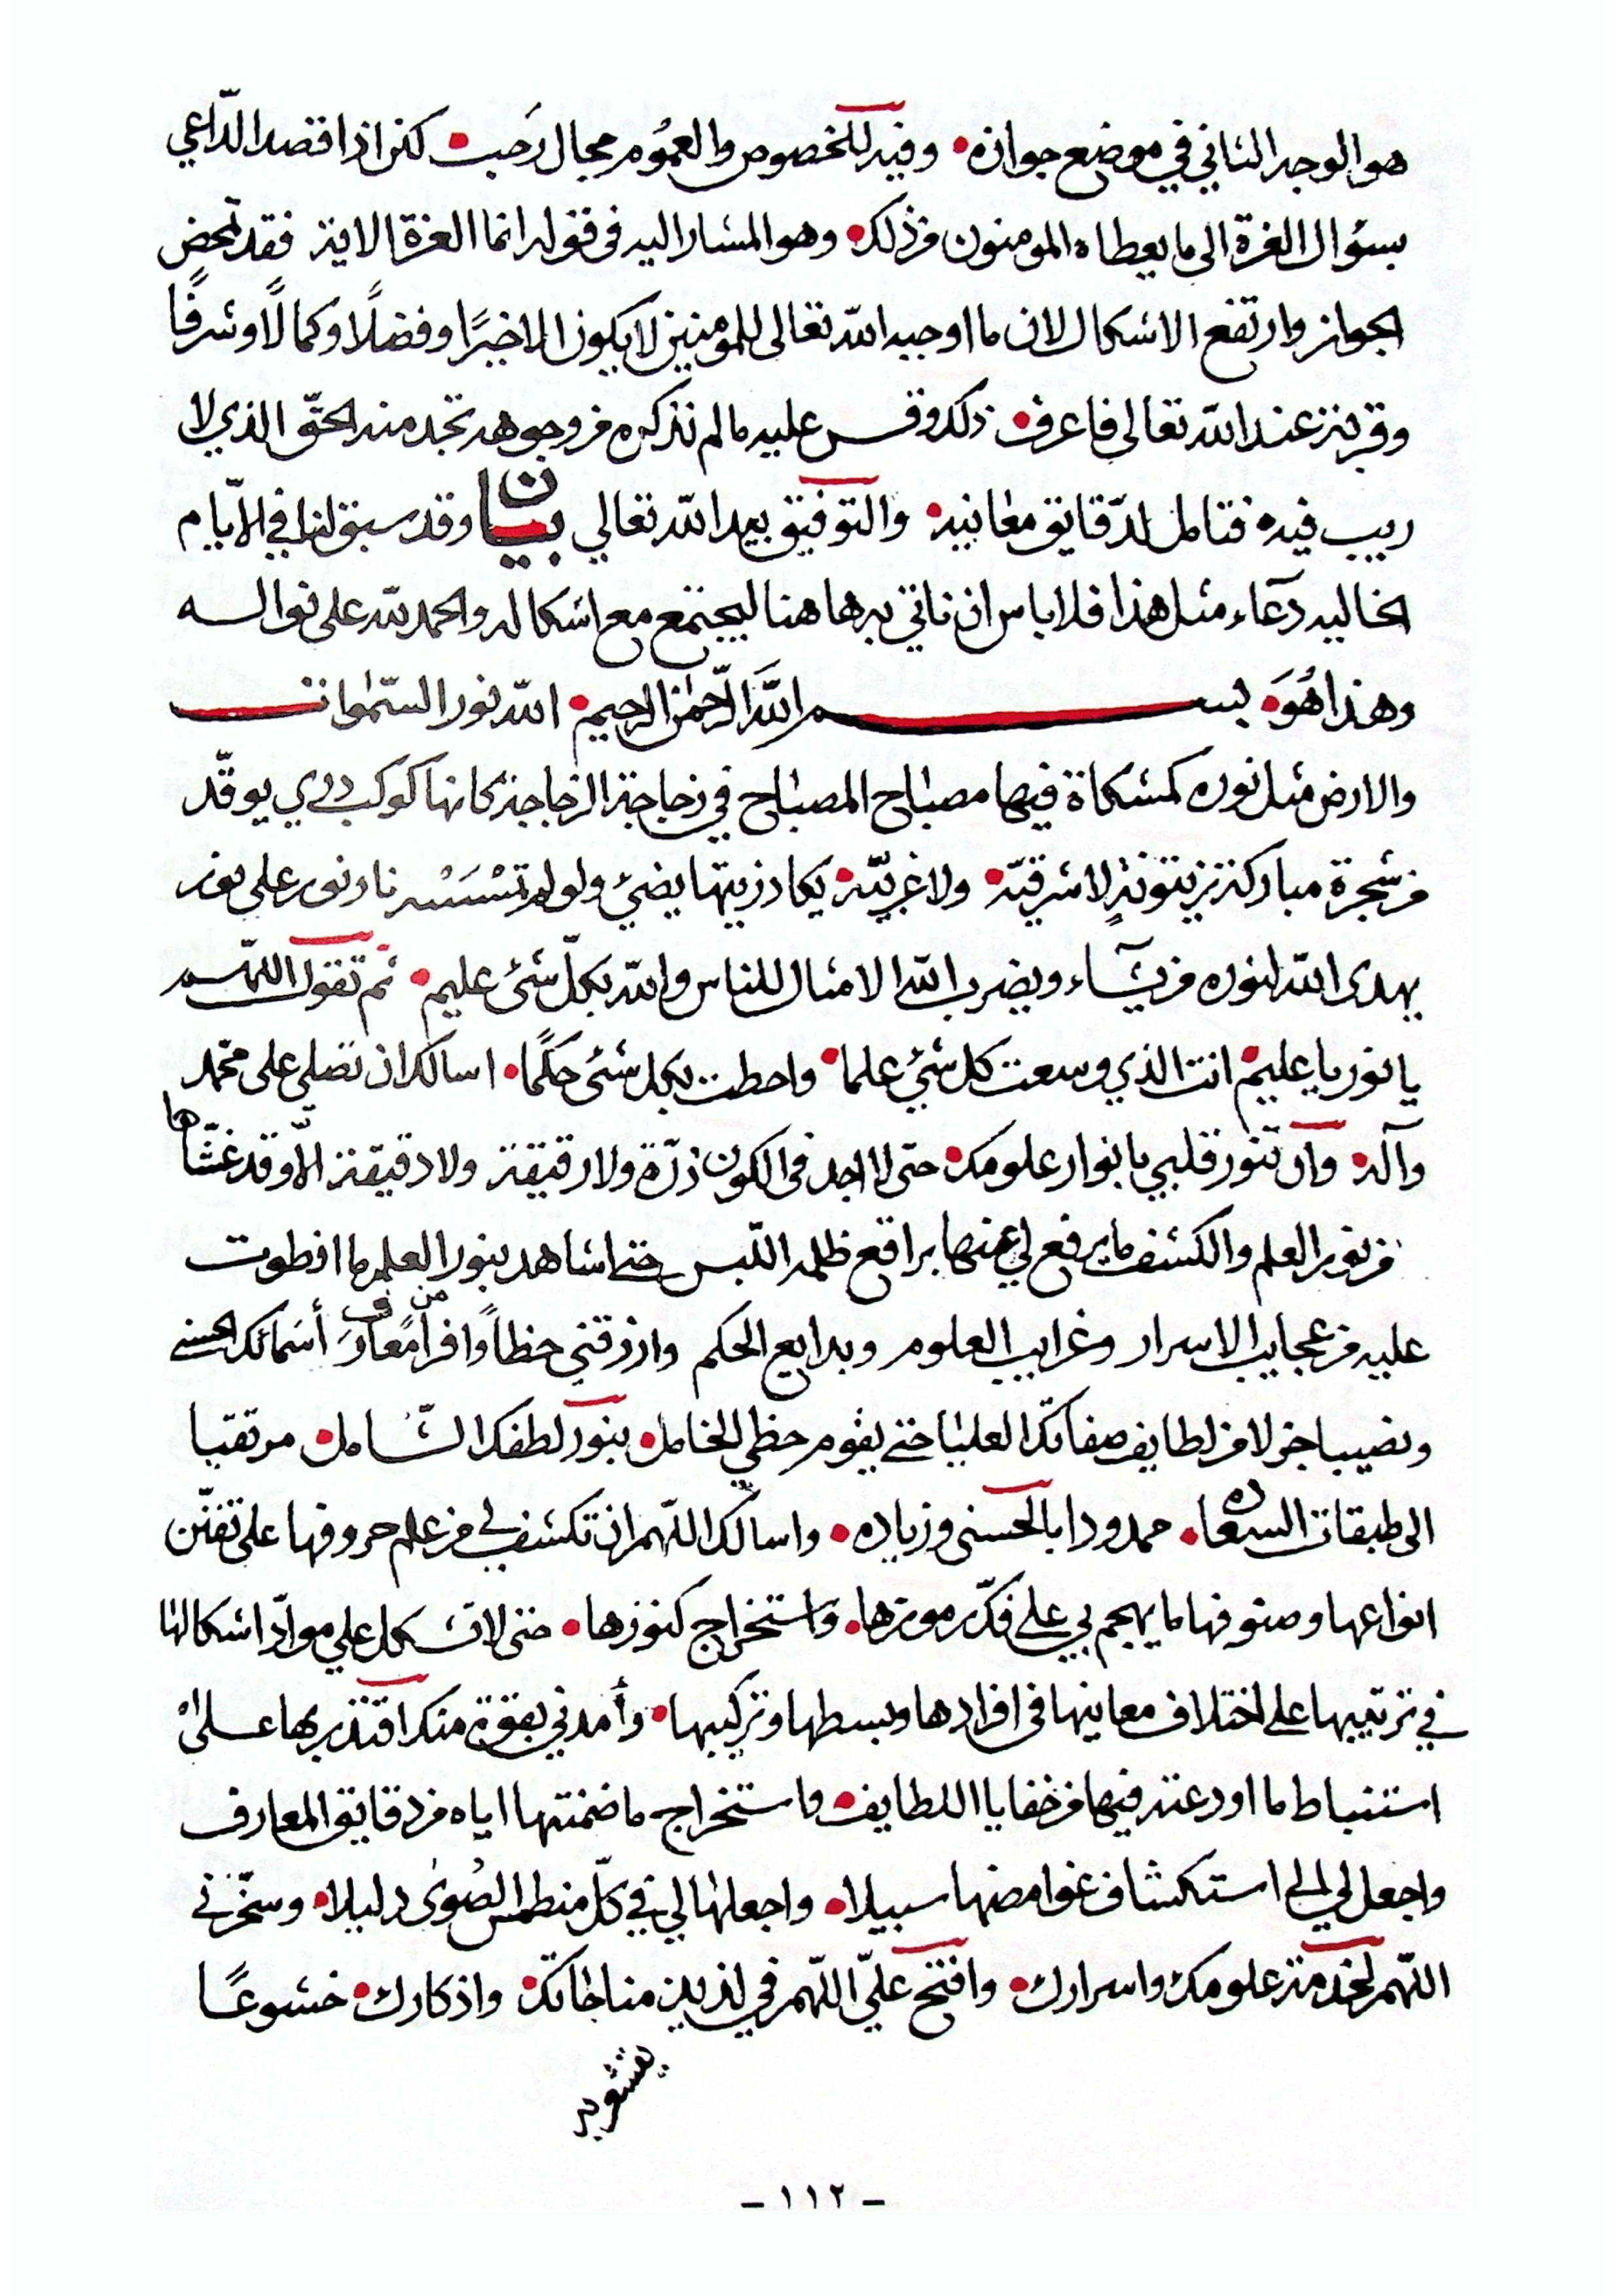 هو الوجه الثاني في موضع جوازه • وفيه للخصوص والعموم مجال رَحب • كمن اذا قصد الدّاعي
بسؤال العزة الى ما يعطاه المومنون من ذلك • وهو المشار اليه فى قوله انما العزة الاية فقد تمحض
الجواز وارتفع الاشكال لان ما اوجبه الله تعالى للمومنين لا يكون الا خيرًا وفضلًا وكمالًا وشرفًا
وقربة عند الله تعالى فاعرف • ذلك وقس عليه ما لم نذكره من وجوهه تجد منه الحقّ الذي لا
ريب فيه • فتامل لدّقايق معانيه • والتوفيق بيد الله تعالي بيان وقد سبق لنا في الايّام
الخاليه دعآء مثل هذا فلا باس ان ناتي به ها هنا ليجتمع مع اشكاله والحمد لله على نواله
وهذا هُوَ • بسم اللهَ الرّحمٰن الرحيم • الله نور السّمٰوات
والارض مثل نوره كمشكاة فيها مصباح المصباح في زجاجة الزجاجة كانها كوكب دري يوقد
من شجرة مباركة زيتونةٍ لا شرقيّة • ولا غربيّة • يكاد زيتها يضئ ولو لم تمْسَسْه نار نور على نور
يهدى الله لنوره من يشآء ويضرب الله الامثال للناس والله بكلّ شئ عليم • ثم تقول اللهّم
يا نور يا عليم • انت الذي وسعت كل شئ علما • واحطت بكل شئ حكمًا • اسالك ان تصلى على محمّد
وآله • وان تنّور قلبي بانوار علومك • حتى لا اجد فى الكون ذرّة ولا رقيقة ولا دقيقة الّا وقد غشّاها
من نور العلم والكشف ما يرفع لي عنها براقع ظلمه اللبس حتى اشاهد بنور العلم ما انطوت
عليه من عجايب الاسرار وغرايب العلوم وبدايع الحكم وارزقني حظاً وافراً من معارف أسمائك الحسنى
ونصيبا جزلا من لطايف صفاتك العليا حتى يقوم حظي الخامل • بنور لطفك الشّامل • مرتقيا
الى طبقات السعاده • حمدودا بالحسنى وزياده • واسالك اللهّم ان تكشف لي من علم حروفها على تفنّن
انواعها وصنوفها ما يهجم بي على فكّ رموزها • واستخراج كنوزها • حتى لا تشكل علي موادّ اشكالها
في ترتيبها على اختلاف معاينها فى افرادها وبسطها وتركيبها • وأمدني بقوة منك اقتدر بها على
استنباط ما اودعته فيها من خفايا اللطايف • واستخراج ما ضمنتها اياه من دقايق المعارف
واجعل لي الى استكشاف غوامضها سبيلا • واجعلها لي في كلّ منطمس الصُوىٰ دليلا • وسخّرني
اللهّم لخدمة علومك واسرارك • وافتح عليّ اللهّم في لذيذ مناجاتك • واذكارك • خشوعًا
- ١١٢ -